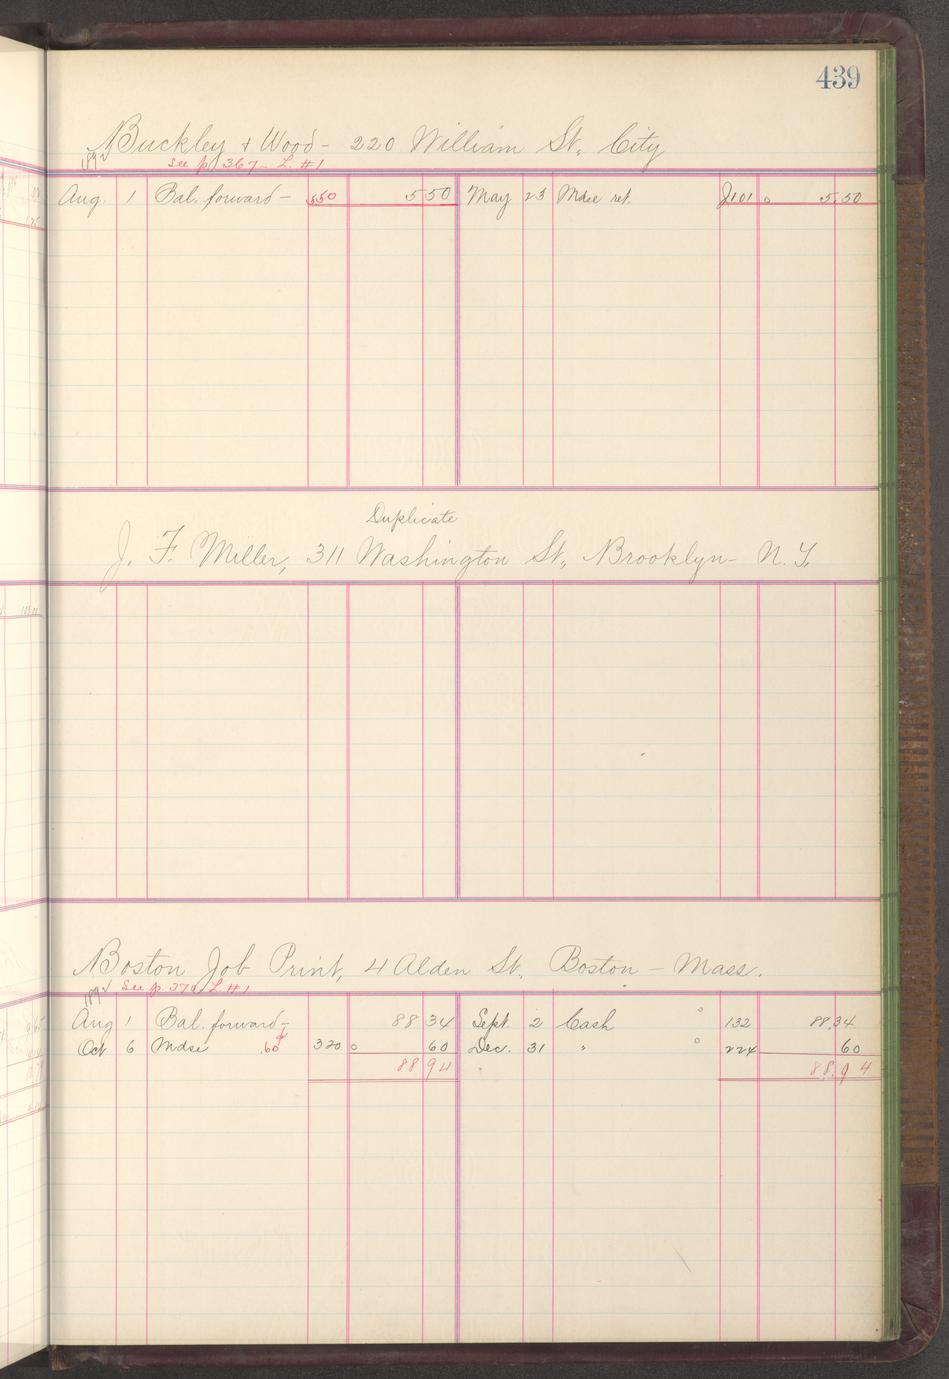 439
Buckley & Wood - 220 William St. City
1892 See p. 367 - L. #1
Aug. 1 Bal. forward - 5.50 5 50 May 23 Mdse ret. J101 5.50
Duplicate
J. F. Miller, 311 Washington St., Brooklyn - N.Y.
Boston Job Print, 4 Alden St. Boston - Mass.
1892 See p. L. #1
Aug 1 Bal. forward - 88 34 Sept. 2 Cash 132 88.34
Oct 6 Mdse .60 320 60 Dec. 31 " 224 60
88 94 88.94